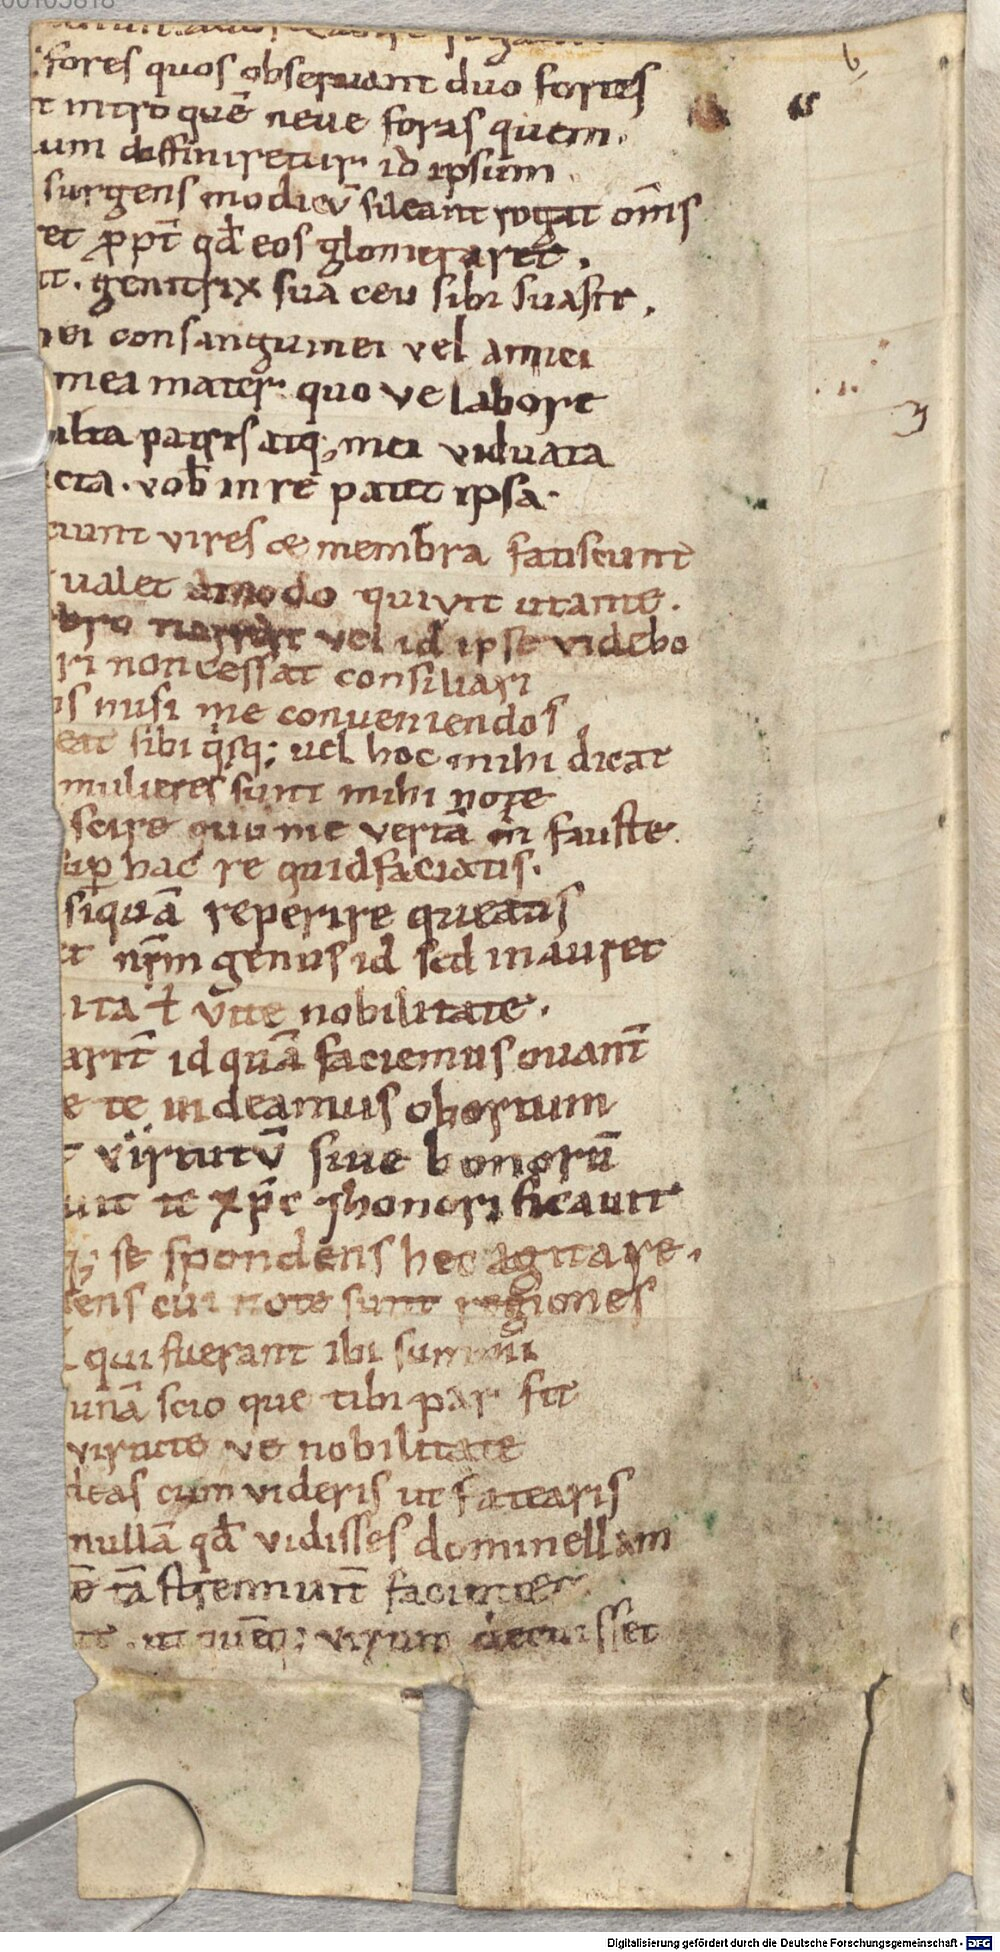 fores quos obseruant duo fortes
t intro quē neue foras quem.
um deffiniretur id ipsum.
surgens modicū sileant rogat om̄s
et ꝓpt̄ qd̄ eos glomeraret.
tt. genitrix sua ceu sibi suasit.
nei consanguinei vel amici
mea mater quo ve labore
ilia patris atq; mei viduata
cta. vob̄ in re patet ipsa.
ciunt vires & membra fatiscunt
ualet amodo quivit ut ante.
bro narrat vel id ipse videbo
ri non cessat consiliari
us nusi me conueniendos
eat sibi q̇sq; uel hoc mihi dicat
mulieres sunt mihi note
scire qui me vertā fauste.
sup̱ hac re quid faciatis.
siquā reperire queatis
et nr̄m genus id sed inauret
ita ł vite nobilitate.
arit̄ id quā faciemus ouant̄
e te uideamus obortum
t virtutū siue bonorū
uit te xp̄c honorificauit
q; se spondens hec agitare.
tens cui note sunt regiones
qui fuerant ibi summi
unā scio que tibi par sit
virtute ve nobilitate
deas cum videris ut fatearis
nullā qd̄ vidisses dominellam
ē tā strennuit̄ facientē
tt. ut quēq; virum decuisset
Digitalisierung gefördert durch die Deutsche Forschungsgemeinschaft - DFG